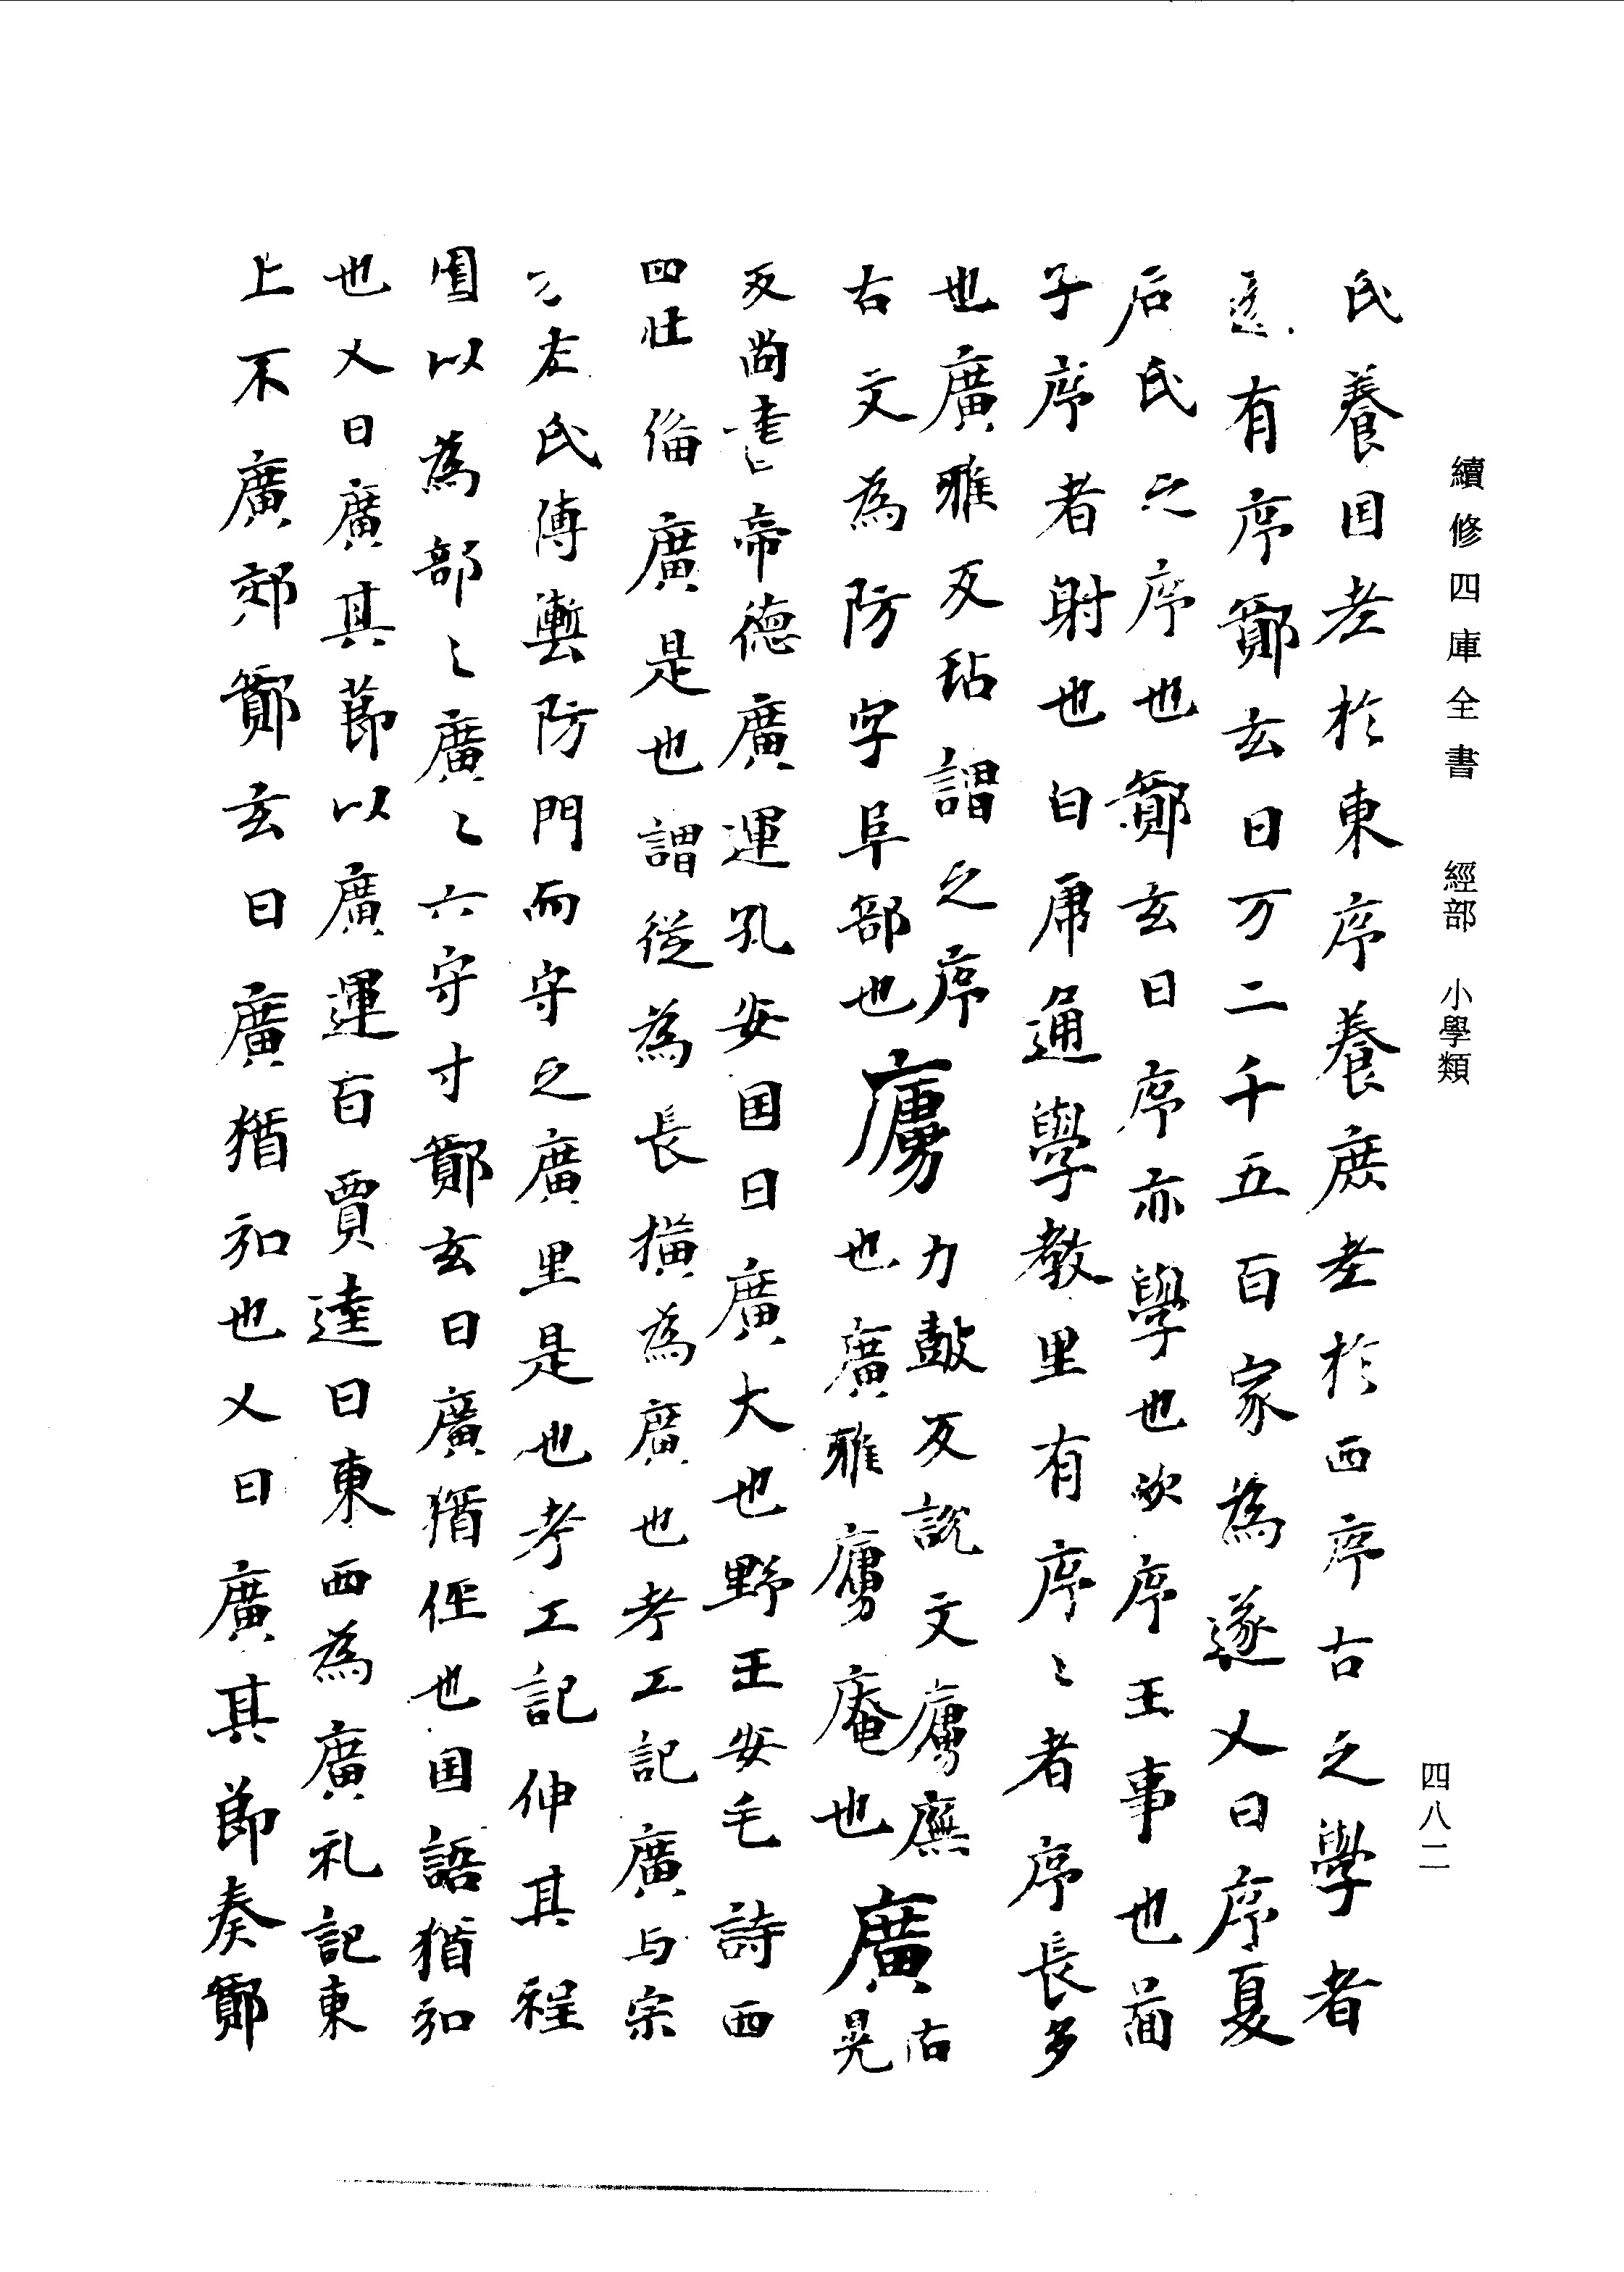 續修四庫全書 經部 小學類
四八二
氏養国老於東序養庶老於西序古之學者
有序鄭玄曰万二千五百家為遂又曰序夏
后氏之序也鄭玄曰序亦學也次序王事也
子序者射也白虎通學教里有序〻者序長多
也廣雅反坫謂之序
古文為防字阜部也
廣
力鼓反說文廡
也廣雅庵也
廣
古晃
反尚書帝德廣運孔安国曰廣大也野王安毛詩西
四牡脩廣是也謂從為長橫為廣也考工記廣与宗
左氏傳塹防門而守之廣里是也考工記伸其程
圍以為部〻廣〻六守寸鄭玄曰廣猶侄也国語猶知
也又曰廣其節以廣運百賈逵曰東西為廣礼記東
上不廣郊鄭玄曰廣猶也又曰廣其節奏鄭